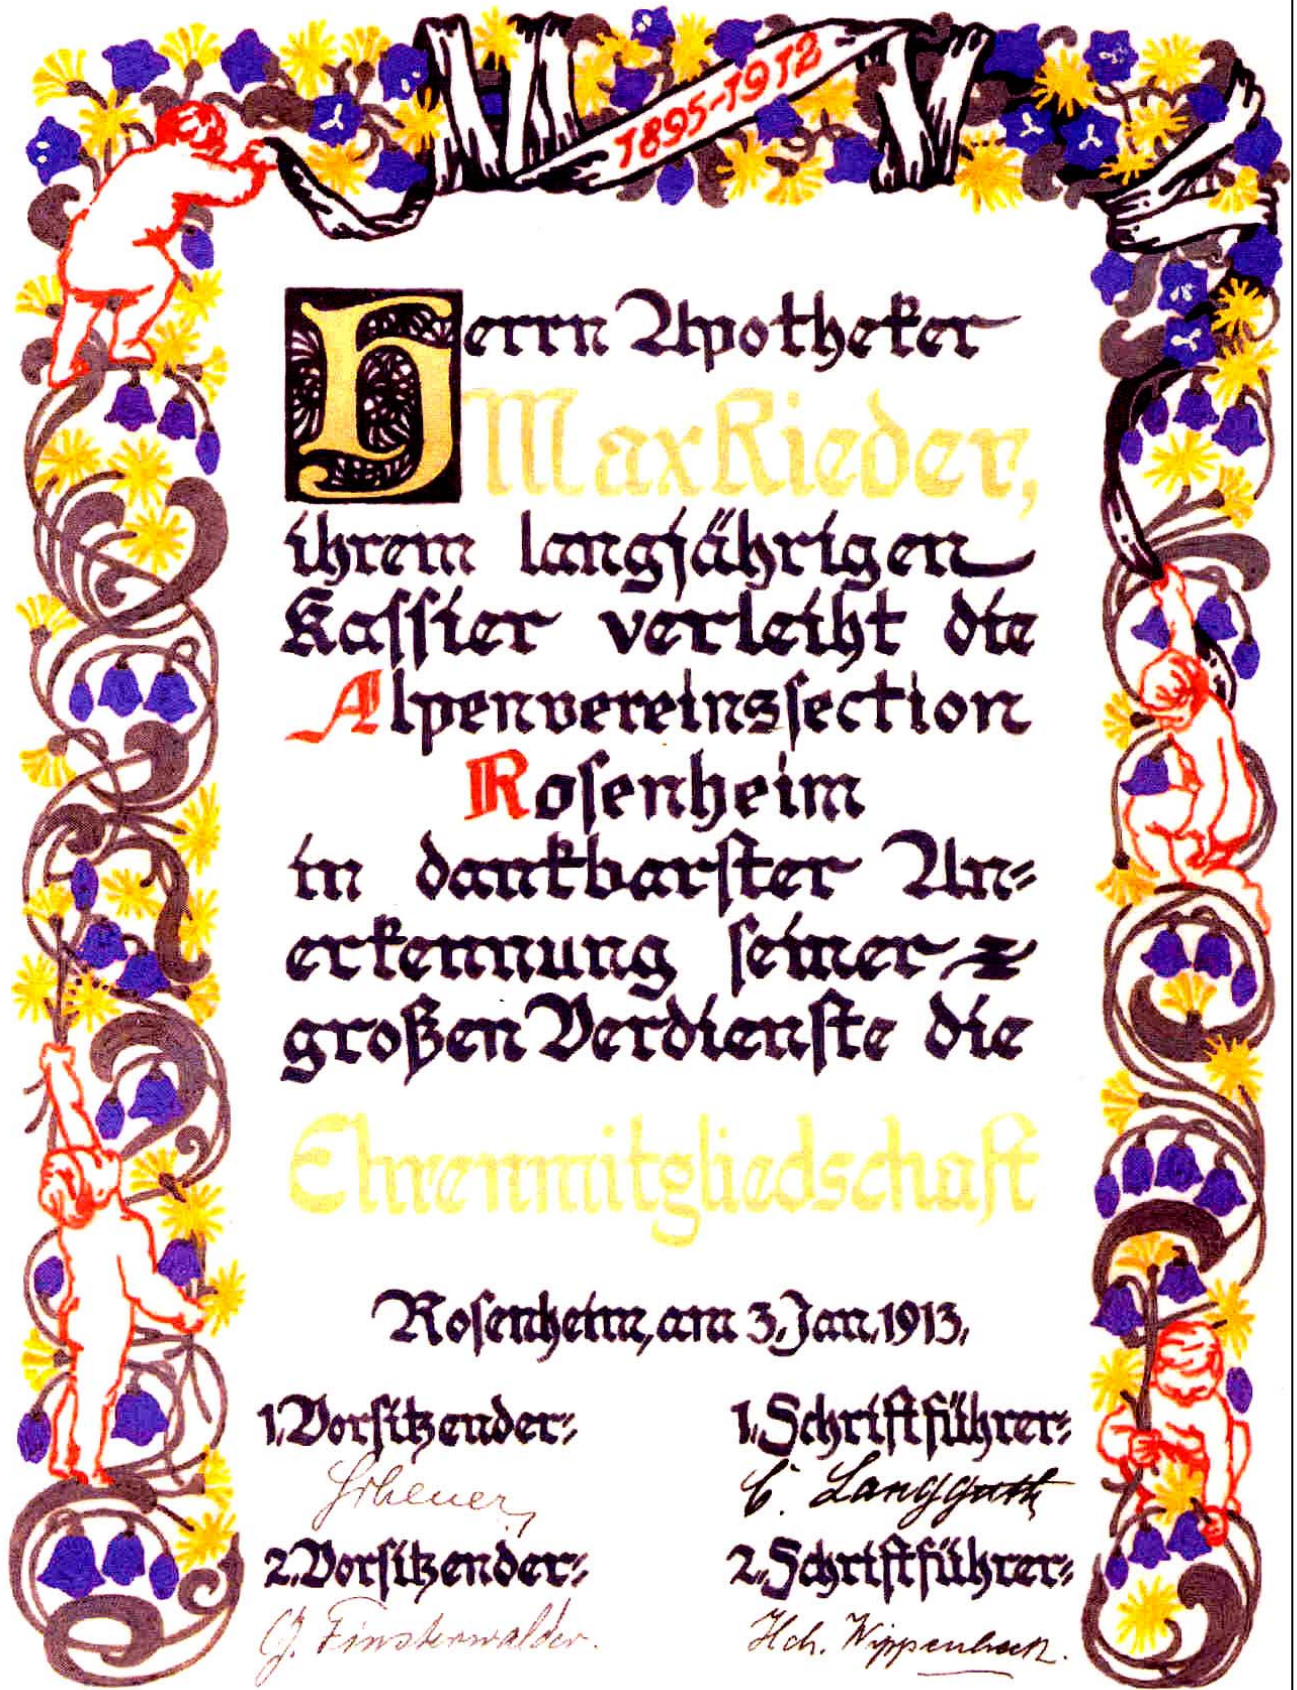 1895-1912
Herrn Apotheker
Max Rieder,
ihrem langjährigen
Kassier verleiht die
Alpenvereinssection
Rosenheim
in dankbarster An=
erkennung seiner
großen Verdienste die
Ehrenmitgliedschaft
Rosenheim, am 3. Jan. 1913.
1. Vorsitzender: 1. Schriftführer:
C. Langguth
2. Vorsitzender: 2. Schriftführer:
G. Finsterwalder. Hch. Wippenbeck.